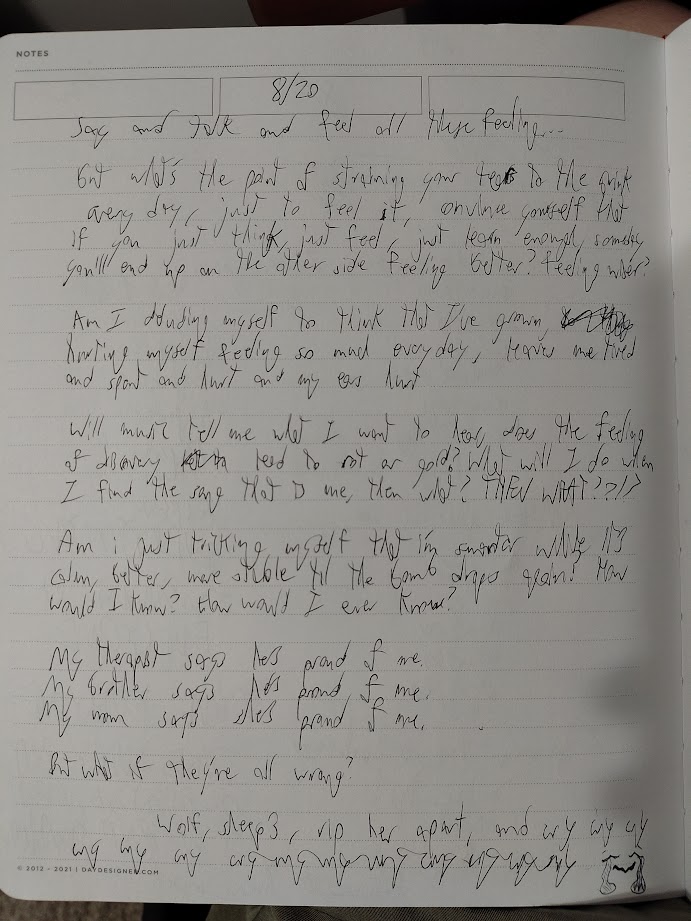 NOTES
8/20
Say and talk and feel all these feeling...
But what's the point of straining your to the brink
every day, just to feel it, convince yourself that
if you just think, just feel, just learn enough, someday
you'll end up on the other side feeling better? feeling wiser?
Am I deluding myself to think that I've grown,
hurting myself feeling so much everyday, leaves me tired
and spent and hurt and my ears hurt
Will music tell me what I want to hear, does the feeling
of discovery lead to rot or gold? What will I do when
I find the song that is me, then what? THEN WHAT??!?
Am i just tricking myself that i'm smarter while it's
calm, better, more stable til the bomb drops again? How
would I know? How would I ever know?
My therapist says he's proud of me.
My brother says he's proud of me.
My mom says she's proud of me.
But what if they're all wrong?
Wolf, sheep3, rip her apart, and cry cry cry
cry cry cry cry cry cry cry cry cry cry cry
© 2012 - 2021 | DAYDESIGNER.COM